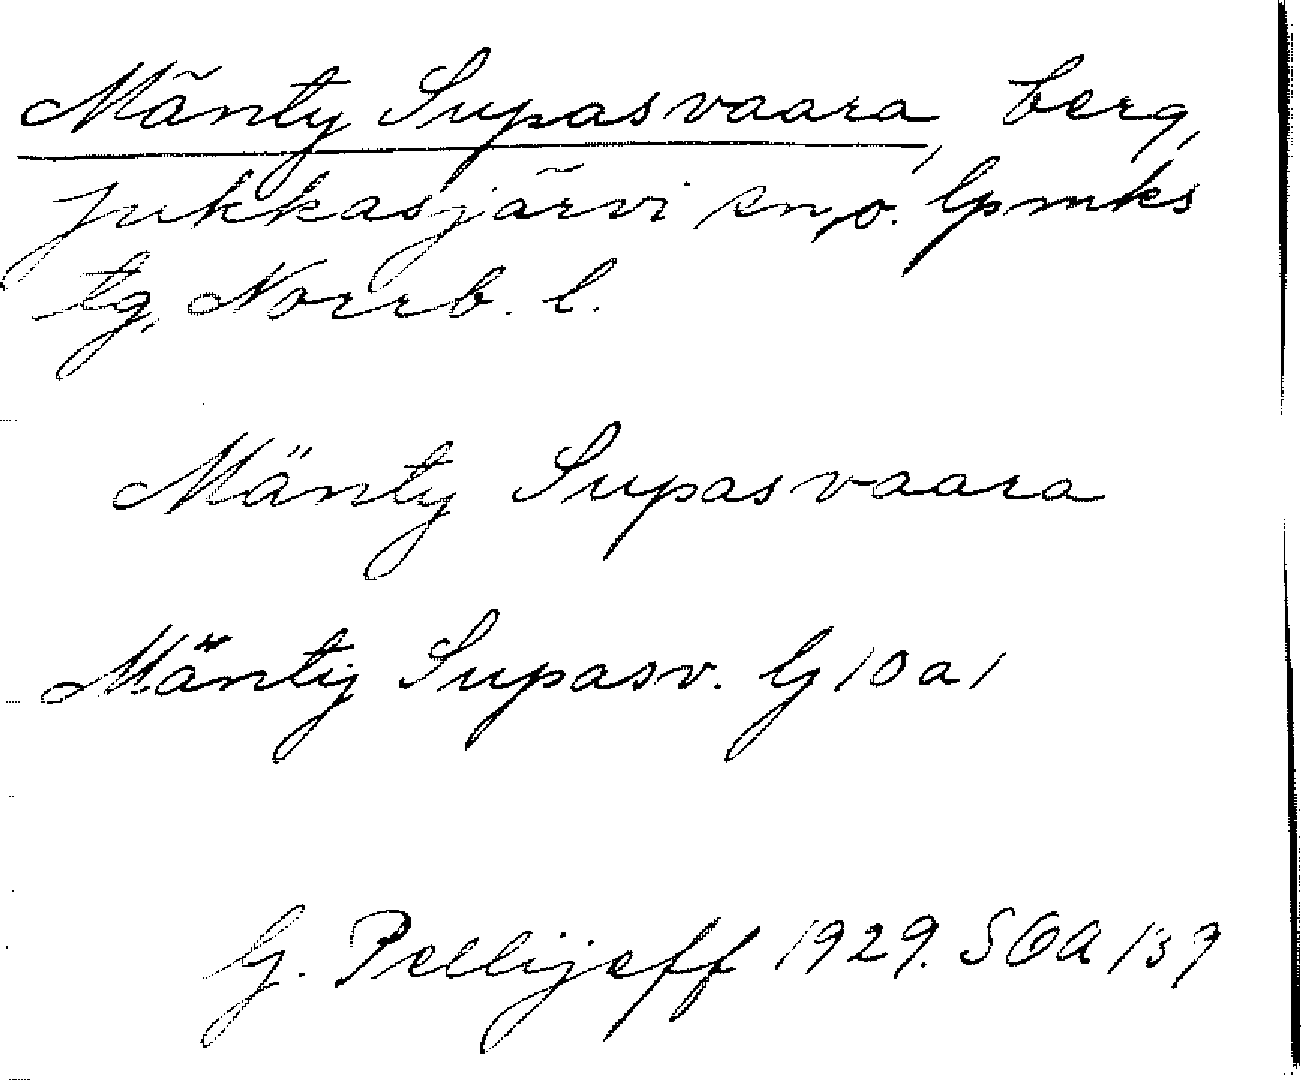 Mänty Supasvaara, berg,
Jukkasjärvi sn, o. lpmks
tg, Norrb. l.
Mänty Supasvaara
Mänty Supasv. G 10 a 1
G. Pellijeff 1929. SOA 139